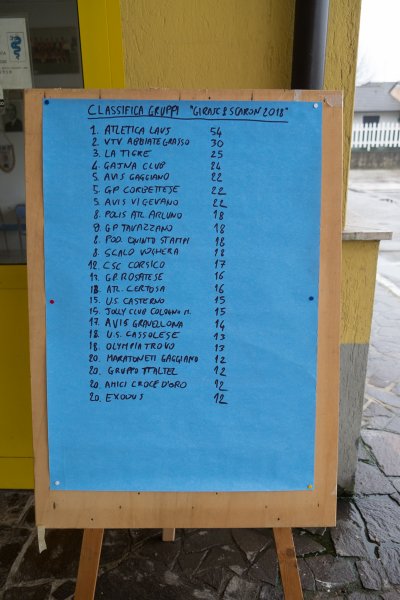 CLASSIFICA GRUPPI "GIRASC&SCARON 2018"
1. ATLETICA LAUS 54
2. VTV ABBIATEGRASSO 30
3. LA TIGRE 25
4. GAJNA CLUB 24
5. AVIS GAGGIANO 22
5 GP CORBETTESE 22
5. AVIS VIGEVANO 22
8. POLIS ATL ARLUNO 18
8 GP TAVAZZANO 18
8 POD. QUINTO STAMPI 18
8 SCALO VOGHERA 18
12. CSC CORSICO 17
13. GP ROSATESE 16
13. ATL. CERTOSA 16
15. U.S. CASTERNO 15
15. JOLLY CLUB COLOGNO M. 15
17. AVIS GRAVELLONA 14
18. U.S. CASSOLESE 13
18. OLYMPIA TROVO 13
20. MARATONETI GAGGIANO 12
20. GRUPPO ITALTEL 12
20. AMICI CROCE D'ORO 12
20. EXODUS 12